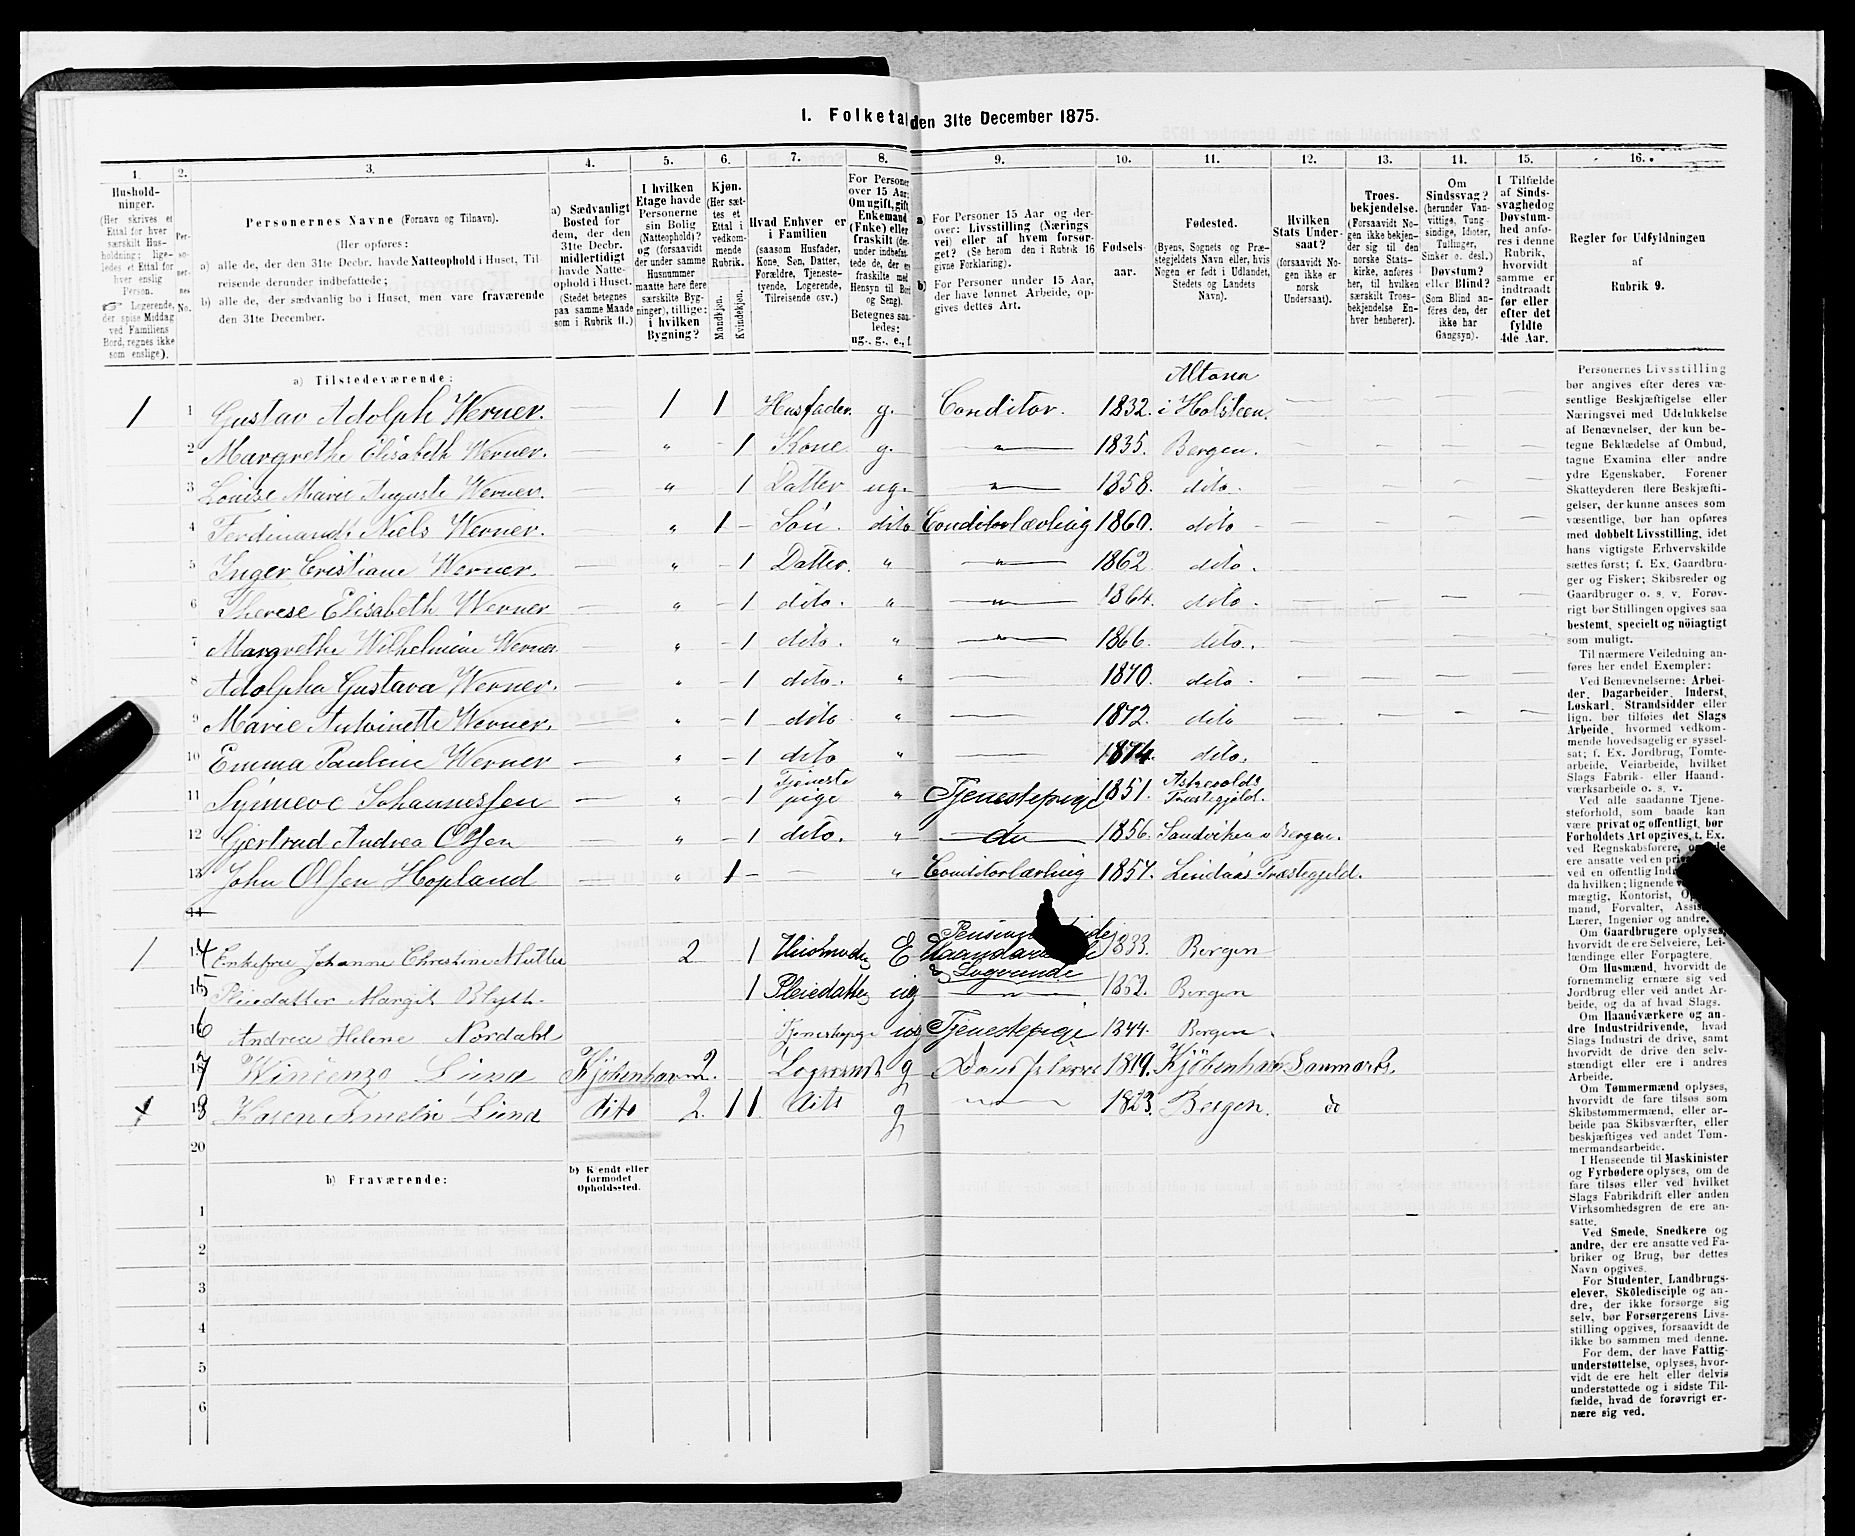 1. Folketal den 31te December 1875.
1. 2. 3. 4. 5. 6. 7. 8. 9. 10. 11. 12. 13. 14. 15. 16.
Hushold-
ninger.
(Her skrives et
Ettal for hver
særskilt Hus-
holdning; lige-
ledes et Ettal for
hver enslig
Person.
☞ Logerende,
der spise Middag
ved Familiens
Bord, regnes ikke
som enslige).
Per-
so-
ner-
nes
No.
Personernes Navne (Fornavn og Tilnavn).
(Her opføres:
a) alle de, der den 31te Decbr. havde Natteophold i Huset, Til-
reisende derunder indbefattede;
b) alle de, der sædvanlig bo i Huset, men vare fraværende
den 31te December.
a) Sædvanligt
Bosted for
dem, der den
31te Decbr.
midlertidigt
havde Natte-
ophold i Huset.
(Stedet betegnes
paa samme Maade
som i Rubrik 11.)
I hvilken
Etage havde
Personerne
sin Bolig
(Natteophold)?
og (forsaavidt
der under samme
Husnummer
maatte høre flere
særskilte Byg-
ninger), tillige:
i hvilken
Bygning?
Kjøn.
(Her sæt-
tes et
Ettal i
vedkom-
mende
Rubrik.
Mandkjøn.
Kvindekjøn.
Hvad Enhver er
i Familien
(saasom Husfader,
Kone, Søn, Datter,
Forældre, Tjeneste-
tyende, Logerende,
Tilreisende osv.)
For Personer
over 15 Aar:
Om ugift, gift,
Enkemand
(Enke) eller
fraskilt (der-
under indbefat-
tede de, der ere
fraskilte med
Hensyn til Bord
og Seng).
Betegnes saa-
ledes:
ug., g., e., f.
a) For Personer 15 Aar og der-
over: Livsstilling (Nærings
vei) eller af hvem forsør-
get? (Se herom den i Rubrik 16
givne Forklaring).
b) For Personer under 15 Aar,
der have lønnet Arbeide, op-
gives dettes Art.
Fødsels-
aar.
Fødested.
(Byens, Sognets og Præ-
stegjeldets Navn eller, hvis
Nogen er født i Udlandet,
Stedets og Landets
Navn).
Hvilken
Stats Under-
saat?
(forsaavidt No-
gen ikke er
norsk
Undersaat).
Troes-
bekjendelse.
(Forsaavidt No-
gen ikke bekjen-
der sig til den
norske Stats-
kirke, anføres
her, til hvilken
særskilt Troes-
bekjendelse En-
hver henhører).
Om
Sindssvag?
(herunder Van-
vittige, Tung-
sindige, Idioter,
Tullinger,
Sinker o. desl.)
Døvstum?
eller Blind?
(Som Blind an-
føres den, der
ikke har
Gangsyn).
I Tilfælde
af Sinds-
svaghed og
Døvstum-
hed anfø-
res i denne
Rubrik,
hvorvidt
samme er
indtraadt
før eller
efter det
fyldte
4de Aar.
Regler for Udfyldningen
af
Rubrik 9.
a) Tilstedeværende:
Altona
1 1 Gustav Adolph Werner. — 1 1 Husfader g. Conditor. 1832. i Holsteen.
2 Margrethe Elisabeth Werner. — " - 1 Kone g. — " — 1835. Bergen.
3 Louise Marie Auguste Werner. — " 1 Datter ug. — " — 1858. dito.
4 Ferdinand Niels Werner. — " 1 - Søn. dito Conditorlærling 1860. dito
5 Inger Cristiane Werner. — " - 1 Datter. " — " — 1862. dito.
6 Therese Elisabeth Werner — " - 1 dito. " — " — 1864. dito.
7 Margrethe Wilhelmine Werner — " - 1 dito. " — " — 1866. dito.
8 Adolpha Gustava Werner. — " - 1 dito. " — 1870. dito
9 Marie Antoinette Werner. — " - 1 dito. " — 1872. dito
10 Emma Pauline Werner — " - 1 dito " — 1874. dito.
11 Synneve Johannessen — " - 1 Tjeneste pige " Tjenestepige 1851. Præstegjeld.
12 Gjertrud Andrea Olsen — " - 1 dito. " do 1856. Sandviken v Bergen.
13 John Olsen Hopland — " 1 - — " Conditorlærling 1857. Lindaas Præstegjeld.
14
1 14 Enkefru Johanne Christine 2 1 E 1833. Bergen
& Logerende
15 Pleiedatter Margit Blytt. 1 Pleiedatter ug — " — 1862. Bergen
16 Andrea Helene Nordahl Tjenestepige ug Tjenestepige 1844. Bergen.
17 Wincenzo Lund Kjøbenhavn 2. Logerende g 1819. Kjöbenhavn Danmark.
18 Lund dito 2. 1 1 dito g — " — 1823. Bergen. do
20
b) Fraværende:
b) Kjendt eller
formodet
Opholdssted.
1
2
3
4
5
6
Personernes Livsstilling
bør angives efter deres væ-
sentlige Beskjæftigelse eller
Næringsvei med Udelukkelse
af Benævnelser, der kun be-
tegne Beklædelse af Ombud,
tagne Examina eller andre
ydre Egenskaber. Forener
Skatteyderen flere Beskjæfti-
gelser, der kunne ansees som
væsentlige, bør han opføres
med dobbelt Livsstilling, idet
hans vigtigste Erhvervskilde
sættes først; f. Ex. Gaardbru-
ger og Fisker; Skibsreder og
Gaardbruger o. s. v. Forøv-
rigt bør Stillingen opgives saa
bestemt, specielt og nöiagtigt
som muligt.
Til nærmere Veiledning an-
føres her endel Exempler:
Ved Benævnelserne: Arbei-
der, Dagarbeider, Inderst,
Løskarl, Strandsidder eller
lign. bør tilføies det Slags
Arbeide, hvormed vedkom-
mende hovedsagelig er syssel-
sat; f. Ex. Jordbrug, Tomte-
arbeide, Veiarbeide, hvilket
Slags Fabrik- eller Haand-
værksarbeide o. s. v.
Ved alle saadanne Tjene-
steforhold, som baade kan
være privat og offentligt, bør
Forholdets Art opgives, t. Ex.
ved Regnskabsførere, om de
ere ansatte ved en
ved en offentlig
da hvilken; lignende
mægtig, Kontorist,
mand, Forvalter,
Lærer, Ingeniør og andre.
Om Gaardbrugere oplyses,
hvorvidt de ere Selveiere, Lei-
lændinge eller Forpagtere.
Om Husmænd, hvorvidt de
fornemmelig ernære sig ved
Jordbrug eller ved andet Ar-
beide, og da af hvad Slags.
Om Haandværkere og an-
dre Industridrivende, hvad
Slags Industri de drive, samt
hvorvidt de drive den selv-
stændigt eller ere i andres
Arbeide.
Om Tømmermænd oplyses,
hvorvidt de fare tilsøs som
Skibstømmermænd, eller ar-
beide paa Skibsværfter, eller
beskjæftiges ved andet Tøm-
mermandsarbeide.
I Henseende til Maskinister
og Fyrbødere oplyses, om de
fare tilsøs eller ved hvilket
Slags Fabrikdrift eller anden
Virksomhedsgren de ere an-
satte.
Ved Smede, Snedkere og
andre, der ere ansatte ved Fa-
briker og Brug, bør dettes
Navn opgives.
For Studenter, Landbrugs-
elever, Skoledisciple og an-
dre, der ikke forsørge sig
selv, bør Forsørgerens Livs-
stilling opgives, forsaavidt de
ikke bo sammen med denne.
For dem, der have Fattig-
understøttelse, oplyses, hvor-
vidt de ere helt eller delvis
understøttede og i sidste Til-
fælde, hvad de forøvrigt er-
nære sig ved.